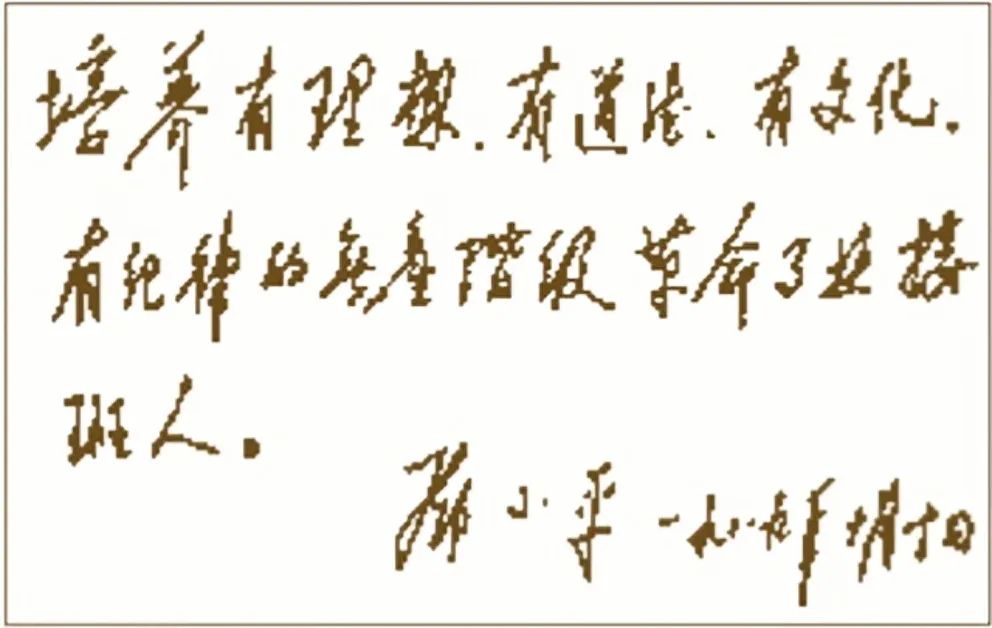 培养有理想、有道德、有文化、
有纪律的无产阶级革命事业接
班人。
邓小平 一九八 年 月 日